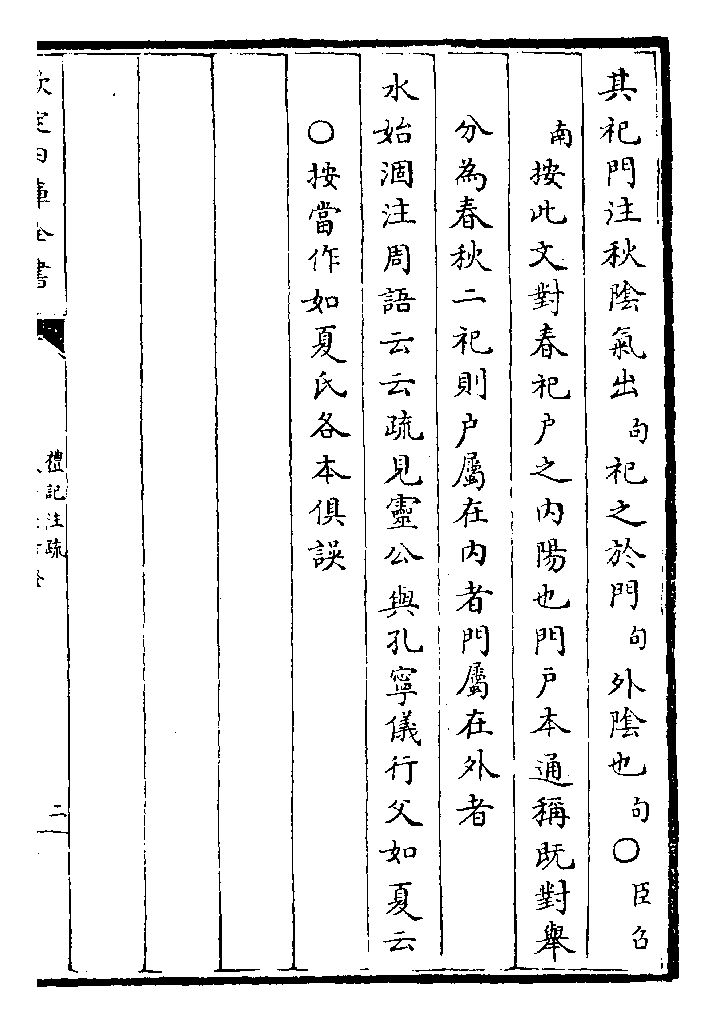 其祀門注秋陰氣出句祀之於門句外陰也句○臣召
南按此文對春祀户之内陽也門户本通稱既對舉
分為春秋二祀則户屬在内者門屬在外者
水始涸注周語云云疏見靈公與孔寧儀行父如夏云
○按當作如夏氏各本俱誤
欽定四庫全書
禮記注疏
二